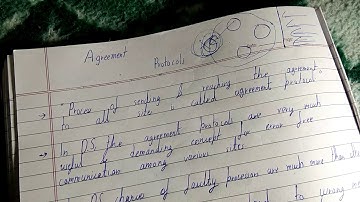 Agreement
Protocols
→ "Process of sending & reaching the agreement
to all sites is called agreement protocol"
→ In DS the agreement protocol are very much
useful & demanding concept for error free
communication among various sites.
DS chances of faulty processors are much more than
to wrong